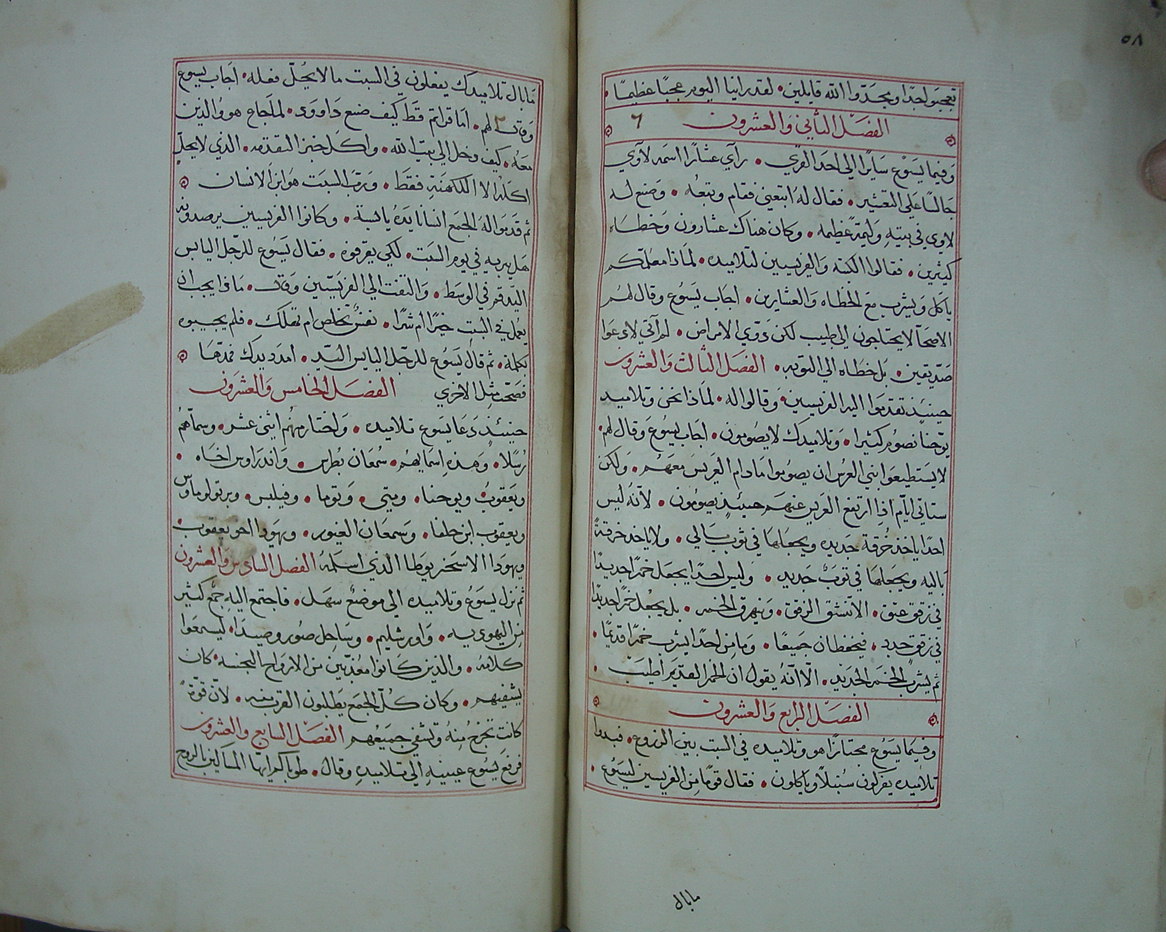 ٥٨
تعجبوا جدا ومجدوا الله قايلين • لقد راينا اليوم عجبًا عظيمًا •
الفصل الثاني والعشرون ٦
وفيما يسوع سايرًا الي احد القري • رآي عشارًا اسمه لاوي
جالسًا علي التعشير • فقال له اتبعني فقام وتبعه • وصنع له
لاوي في بيته وليمة عظيمه • وكان هناك عشارون وخطاه
كثيرين • فقالوا الكتبه والفريسيين لتلاميده • لماذا معلمكم
ياكل ويشرب مع الخطاه والعشارين • اجاب يسوع وقال لهم
الاصحآ لا يحتاجون الي طبيب لكن دوي الامراض • لم آتي لادعوا
صديقين • بل خطاه الي التوبه • الفصل الثالث والعشرون
حينيذ تقدموا اليه الفريسين وقالوا له • لماذا نحن وتلاميد
يوحنا نصوم كثيرا • وتلاميدك لا يصومون • اجاب يسوع وقال لهم •
لا يستطيعوا ابني العرس ان يصوموا ما دام العريس معهم • ولكن
ستاتي ايام اذا ارتفع العريس عنهم حينيذ يصومون • لانه ليس
احدا ياخد خرقة جديد ويجعلها في ثوب بالي • ولا ياخد خرقة
باليه ويجعلها في توب جديد • وليس احدًا يجعل خمرًا جديدًا
في زق عتق • الا تنشق الزقق • وتهرق الخمر • بل يجعل خمرًا جديدًا
في زق جديد • فيحفظان جميعًا • وما من احدا يشرب خمرًا قديمًا •
ثم يشرب الخمر الجديد • الا انه يقول ان الخمر القديم اطيب •
الفصل الرابع والعشرون
وفيما يسوع مجتازًا هو وتلاميده في السبت بين الزروع • فبدوا
تلاميده يفركون سنبلًا وياكلون • فقال قومًا من الفريسين ليسوع •
ما بال
ما بال تلاميدك يفعلون في السبت ما لا يحل فعله • اجاب يسوع
وقال لهم • اما قراتم قط كيف صنع داوود • لما جاع هو والدين
معه • كيف دخل الي بيت الله • واكل خبز التقدمه • الذي لا يحل
اكله الا للكهنة فقط • ورب السبت هو ابن الانسان
ثم قدموا له الجمع انسانًا يده يابسة • وكانوا الفريسين يرصدونه
هل يبريه في يوم السبت • لكي يقرفوه • فقال يسوع للرجل اليابس
اليد قم في الوسط • والتفت الي الفريسين وقال • ماذا يجب ان
يعمل في السبت خيرًا ام شرًا • نفس تخلص ام تهلك • فلم يجيبوه
بكلمه • ثم قال يسوع للرجل اليابس اليد • امدد يدك فمدها
فصحت مثل الاخري الفصل الخامس والعشرون
حينيذ دعا يسوع تلاميده • واختار منهم اثني عشر • وسماهم
رسلًا • وهده اسمايهم • سمعان بطرس • واندراوس اخاه •
ويعقوب ويوحنا • ومتي • وتوما • وفيلبس • وبرتولوماوس
ويعقوب ابن حلفا • وسمعان الغيور • ويهودا اخو يعقوب
ويهودا الاسخريوطا الذي اسلمه الفصل السادس والعشرون
ثم نزل يسوع وتلاميده الي موضع سهل • فاجتمع اليه جمع كثير
من اليهوديه • واورشليم • وساحل صور وصيدا • ليسمعوا
كلامه • والدين كانوا معذبين من الارواح النجسه • كان
يشفيهم • وكان كل الجمع يطلبون القرب منه • لان قوة
كانت تخرج منه وتشفي جميعهم الفصل السابع والعشرون
فرفع يسوع عينيه الي تلاميده وقال • طوباكم ايها المساكين بالروح